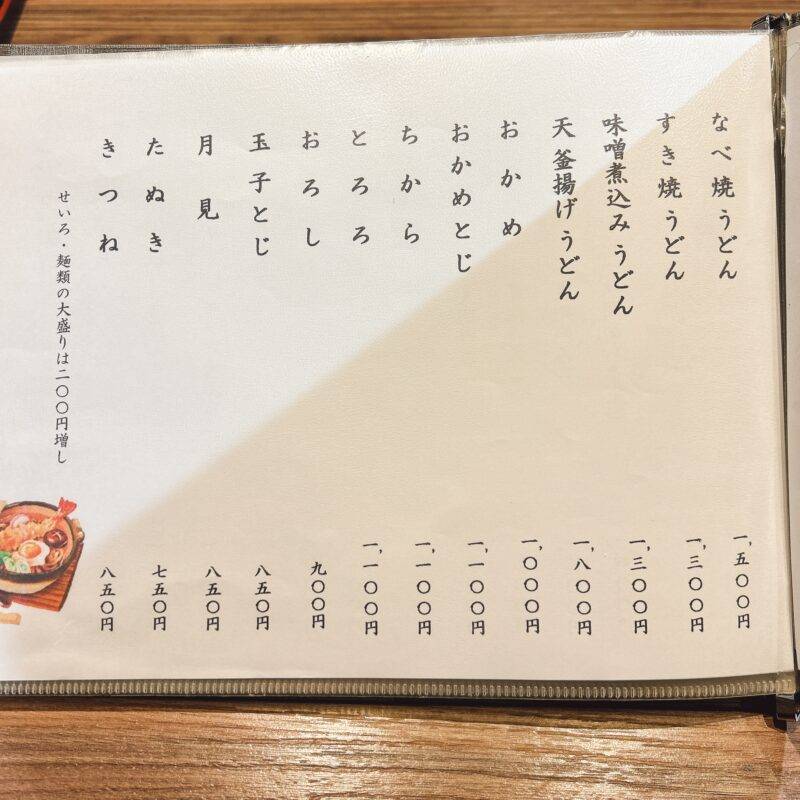 なべ焼うどん 一,五〇〇円
すき焼うどん 一,三〇〇円
味噌煮込みうどん 一,三〇〇円
天釜揚げうどん 一,八〇〇円
おかめ 一,〇〇〇円
おかめとじ 一,一〇〇円
ちから 一,一〇〇円
とろろ 一,一〇〇円
おろし 九〇〇円
玉子とじ 八五〇円
月見 八五〇円
たぬき 七五〇円
きつね 八五〇円
せいろ・麺類の大盛りは二〇〇円増し